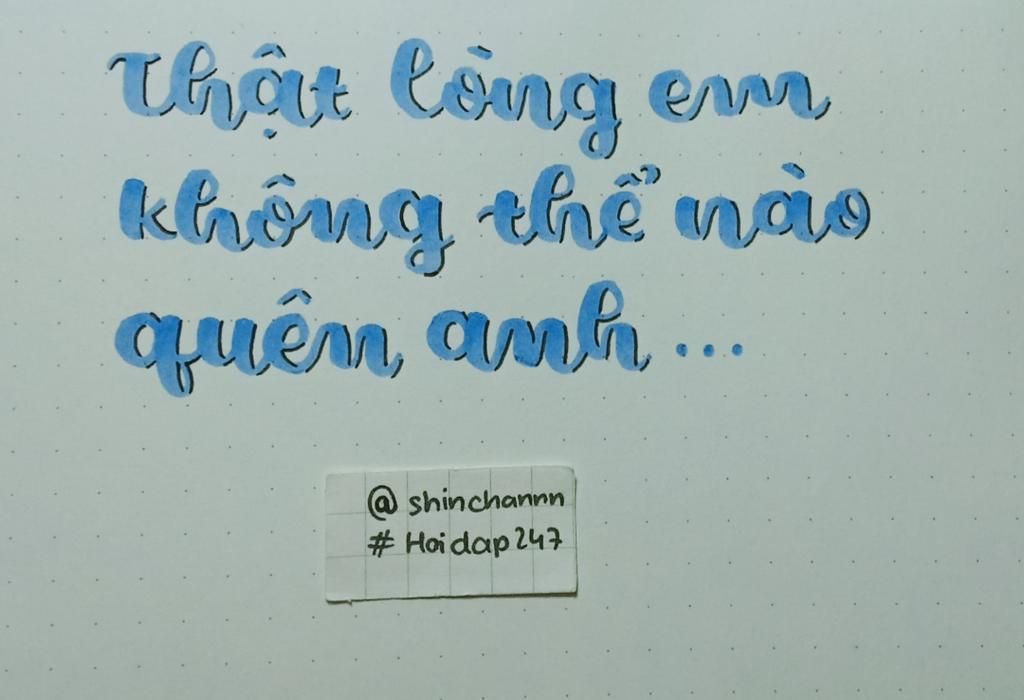 Thật lòng em
không thể nào
quên anh...
@ shinchannn
# Hoidap247